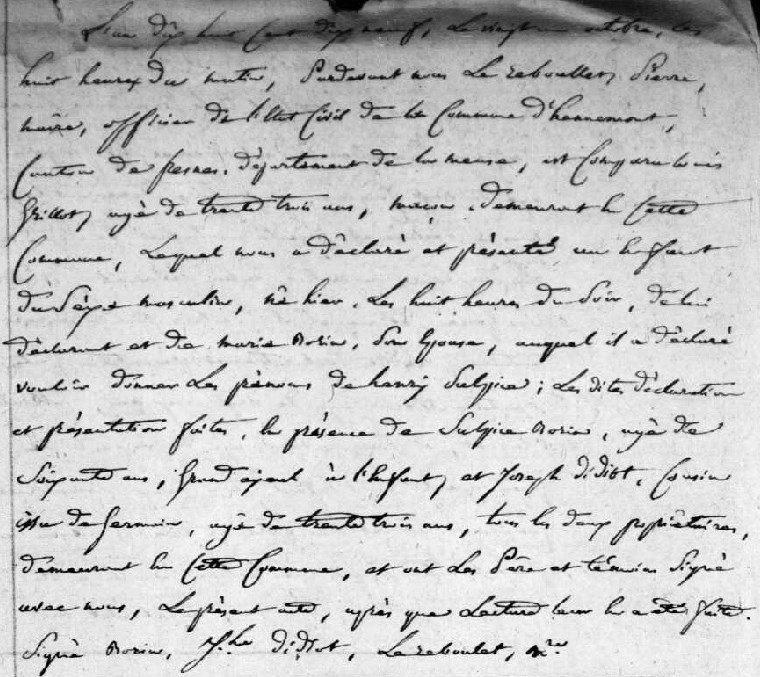 L'an dix huit cent dix neuf, le vingt un octobre, les
huit heures du matin, Pardevant nous Le reboullet, Pierre,
maire, officier de l'Etat Civil de la Commune d'hannemont,
Canton de fresnes, département de la meuse, est Comparu Louis
Grillot, agé de trente trois ans, macon, demeurant en Cette
Commune, Lequel nous a déclaré et présenté un Enfant
du Séxe masculin, né hier, Les huit heures du Soir, de lui
déclarant et de marie Morin, Son Epouse, auquel il a déclaré
vouloir donner Les prénoms de henry Sulpice; Les dites déclaration
et présentation faites, En présence de Sulpice Morin, agé de
Soixante ans, Grand ayeul à l'Enfant, et Joseph didiot, Cousin
issu de Germain, agé de trente trois ans, tous les deux propriétaires,
demeurant En Cette Commune, et ont Les Père et témoins Signé
avec nous, Le présent acte, après que Lecture leur En a été faite.
Signé Morin, J.he didiot, Le reboulet, m.re